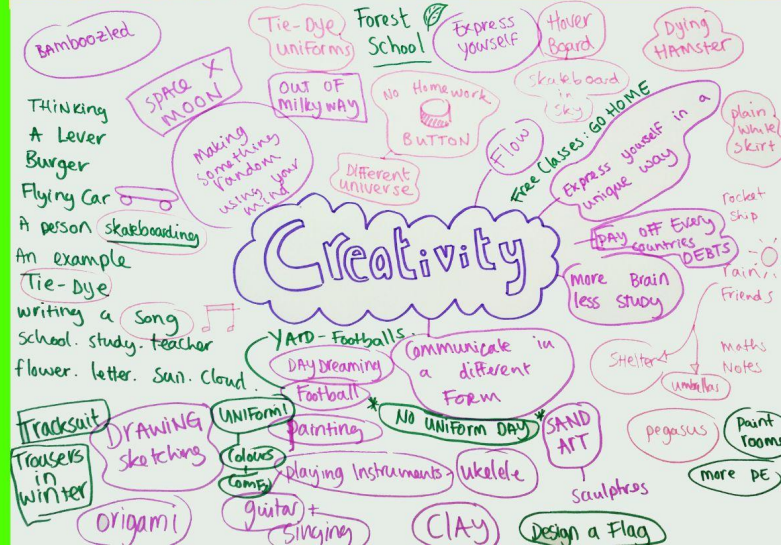 BAMBOOZLED
Tie-Dye
uniforms
Forest
School
Express
yourself
Hover
Board
Dying
HAMSTER
SPACE X
MOON
OUT OF
milky way
No Homework
BUTTON
Skateboard
in
sky
plain
white
skirt
THiNking
A Lever
Burger
Flying Car
A person skateboarding
An example
Tie-Dye
writing a song
school. study. teacher
flower. letter. Sun. Cloud.
making
something
random
using your
mind
Different
universe
Flow
Free Classes: GO HOME
Express yourself in a
unique way
Creativity
rocket
ship
DAY OFF Every
countries
DEBTS
more Brain
less study
rain
Friends
SHelter
umbrellas
Maths
Notes
YARD-Footballs.
DAY DReaming
Football
Painting
Communicate in
a different
Form
* No UNiFoRM DAY *
SAND
ART
pegasus
Paint
rooms
more PE
Tracksuit
Trousers
in
winter
DRAWiNG
Sketching
UNiForm!
Colours
Comfy
Playing Instruments
Ukelele
Sculptres
origami
guitar +
Singing
ClAY
Design a Flag